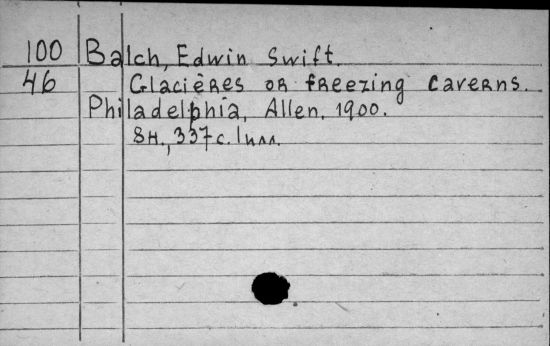 100 Balch, Edwin Swift.
46 Glacières or freezing caverns.
Philadelphia, Allen, 1900.
8н., 337с. 1илл.